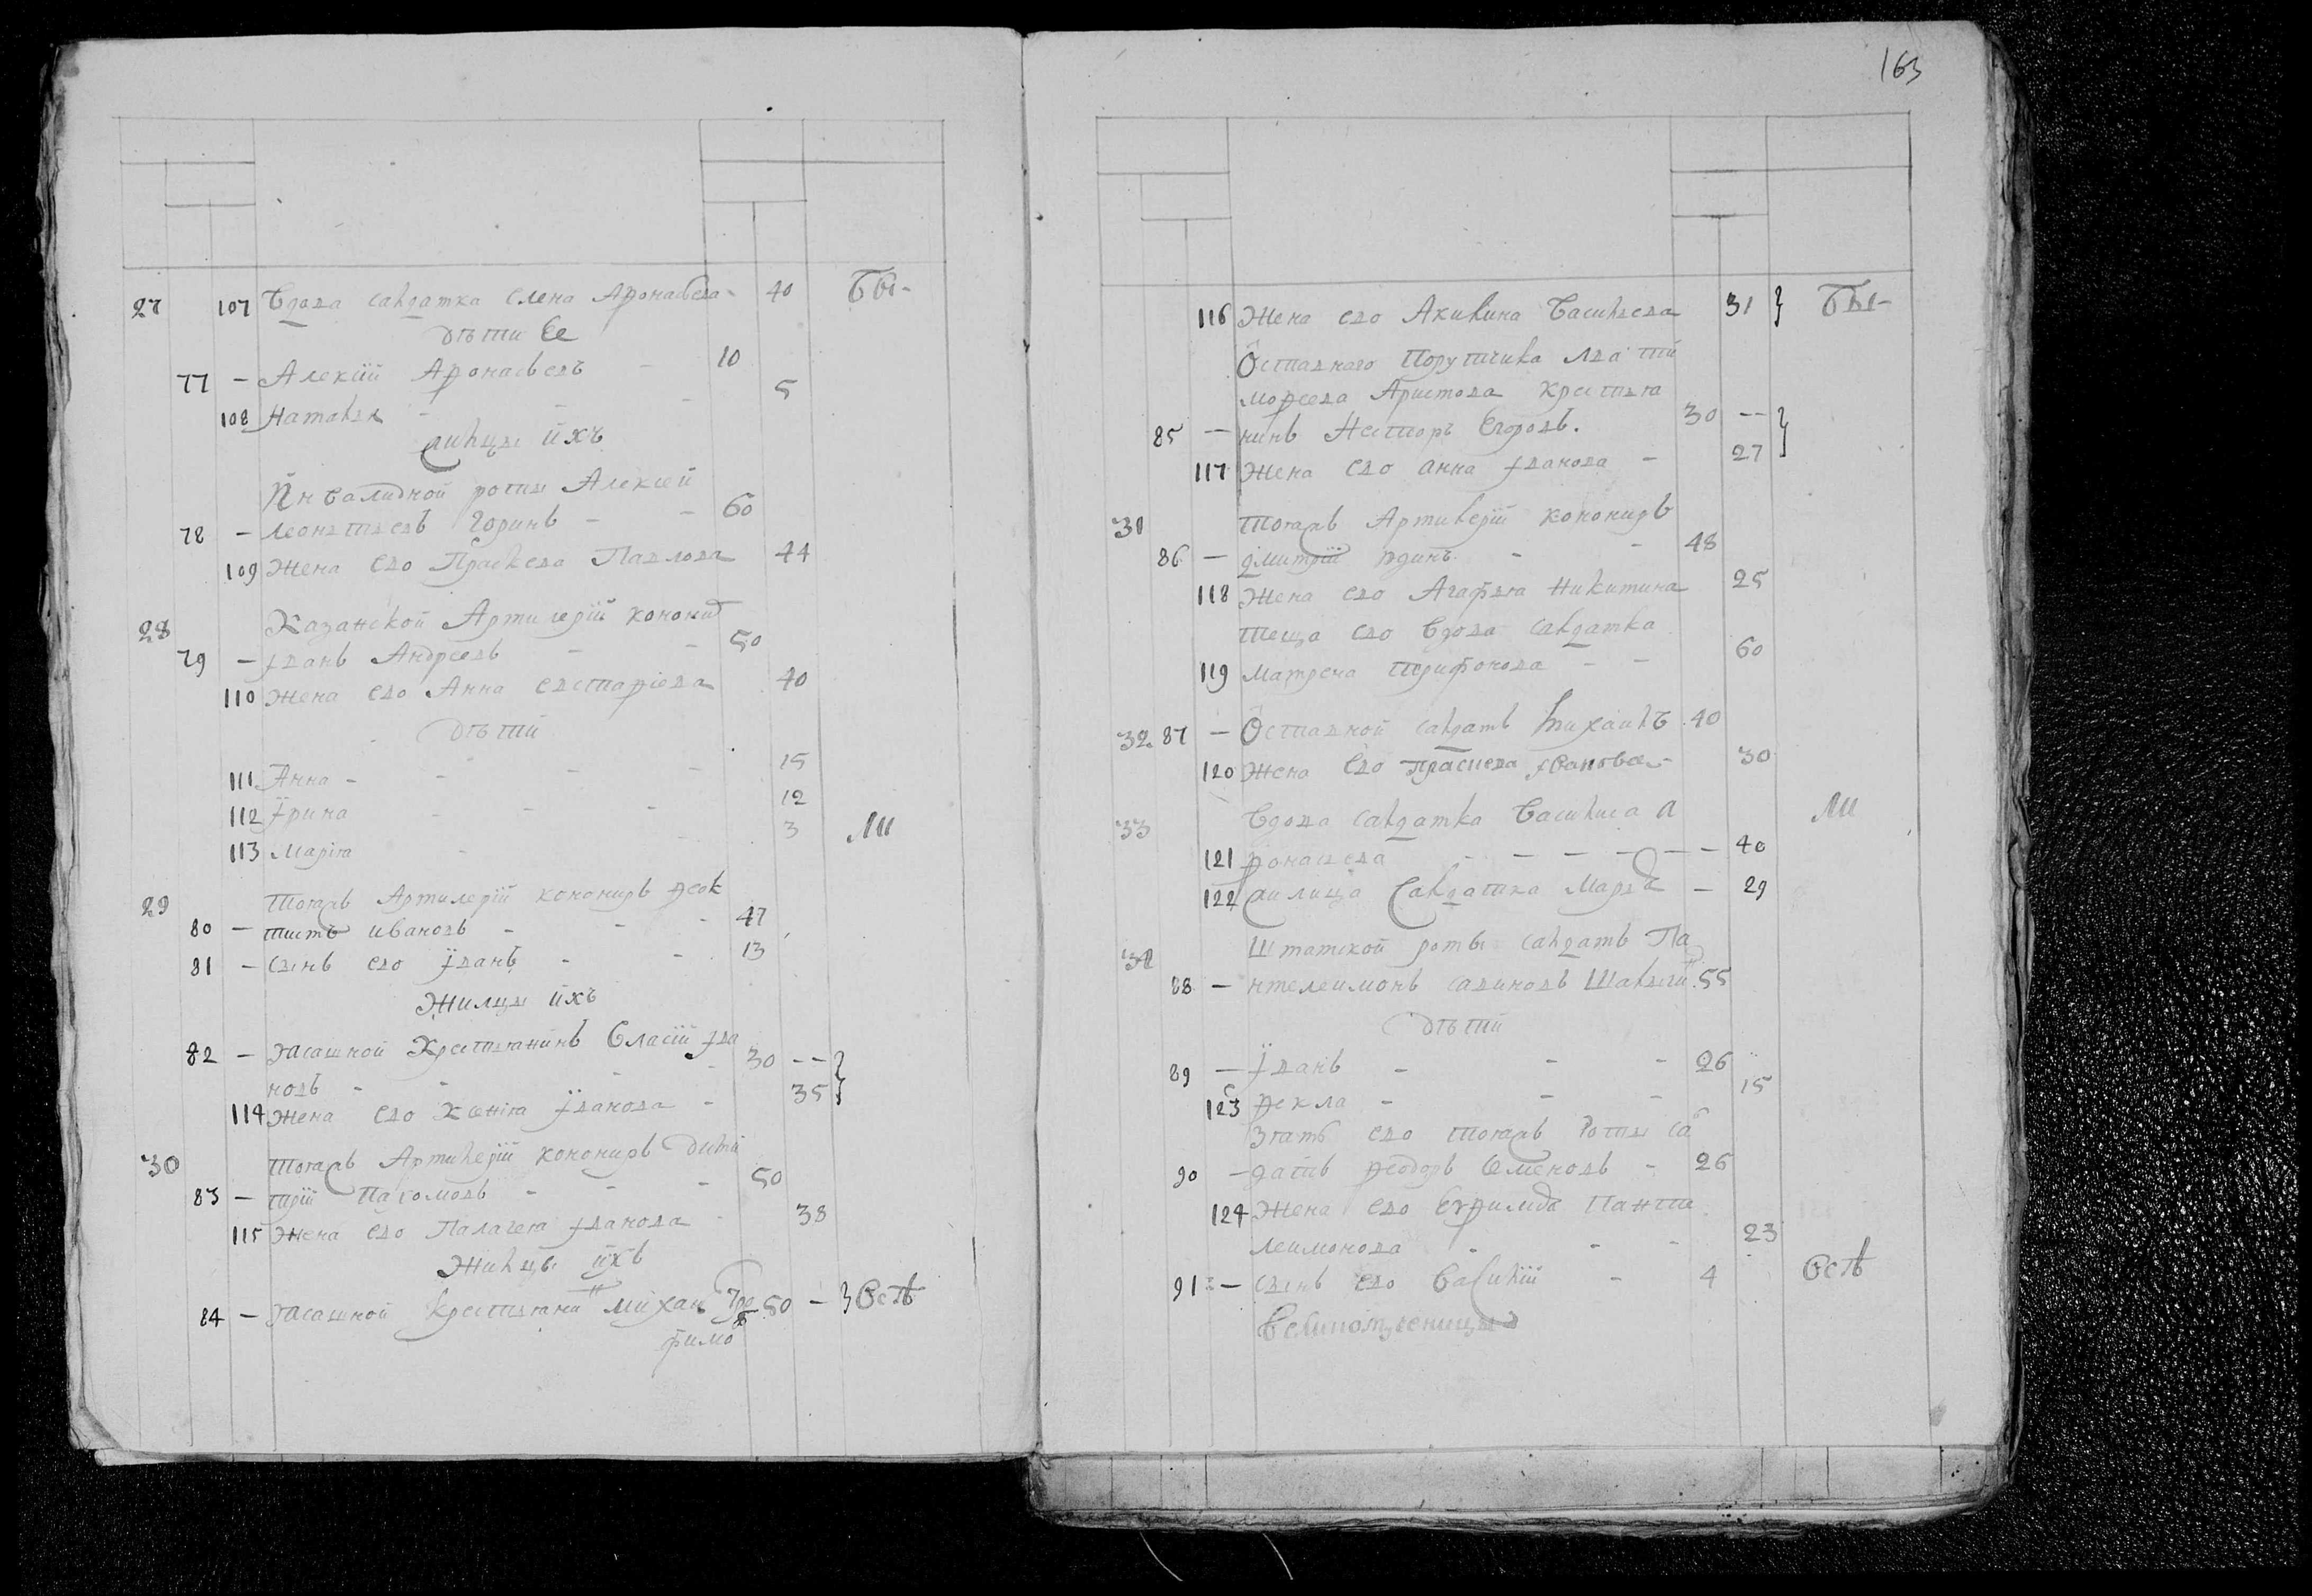 27 107 Вдова салдатка Елена Афонасьева - 40 Бы-
дѣти Ее
77 - Алексїй Афонасьевъ - 10
108 Наталья - - - 5
Жильцы ихъ
Инвалидной роты Алексѣй
78 - Леонтьевъ Горинъ - - 60
109 Жена ево Прасковя Павлова 44
28 Казанской Артилерїи кононир
79 - Іванъ Андреевъ - - 50
110 Жена ево Анна Евстафіева 40
дѣти
111 Анна - - - - 15
112 Ірина - - - 12
113 Маріа - - 3 ли
29 Тогожъ Артилерїи кононирь Феок
80 - тистъ ивановъ - - - 47
81 - сынъ ево Іванъ - - 13
Жилцы ихъ
82 - Ясашной Крестьянинъ Власїй Ива
новъ - - - - 30 --
114 Жена ево Ксеніа Іванова - 35
30 Тогожъ Артилерїи кононирь Дими
83 - трїй Пахомовъ - - - 50
115 Жена ево Палагеа Іванова - 38
Жильцы ихъ
84 - Ясашной крестьянин Михаи Тро 50 - Всѣ
фимо
163
116 Жена ево Акилина Васильева 31 Бы-
Отставнаго Порутчика Ива Ти
мофеева Аристова крестья
85 - нинъ Несторъ Егоровъ. 30 --
117 Жена ево анна Іванова - 27
31 Тогожъ Артилерїи кононирь
86 - Дмитрїй Юдинъ - - 48
118 Жена ево Агафья Никитина 25
Теща ево вдова салдатка
119 Матрена Трифонова - - 60
32 87 - Отставной салдатъ Михаилъ 40
120 Жена Ево прасцева Іванова - 30
33 Вдова салдатка Василиса А ли
121 фонасева - - - - - - 40
122 жилица Салдатка Марья - 29
34 Штатской роты салдатъ Па
88 - нтелеимонъ савиновъ 55
дѣти
89 - Іванъ - - - 26
123 Фекла - - - 15
Зять ево тогожъ роты са
90 - датъ Феодоръ Семеновъ - 26
124 Жена ево Ефимиа Панте
леимонова - - - 23
91 - сынъ ево Василїй - 4 Всѣ
Великомученицы